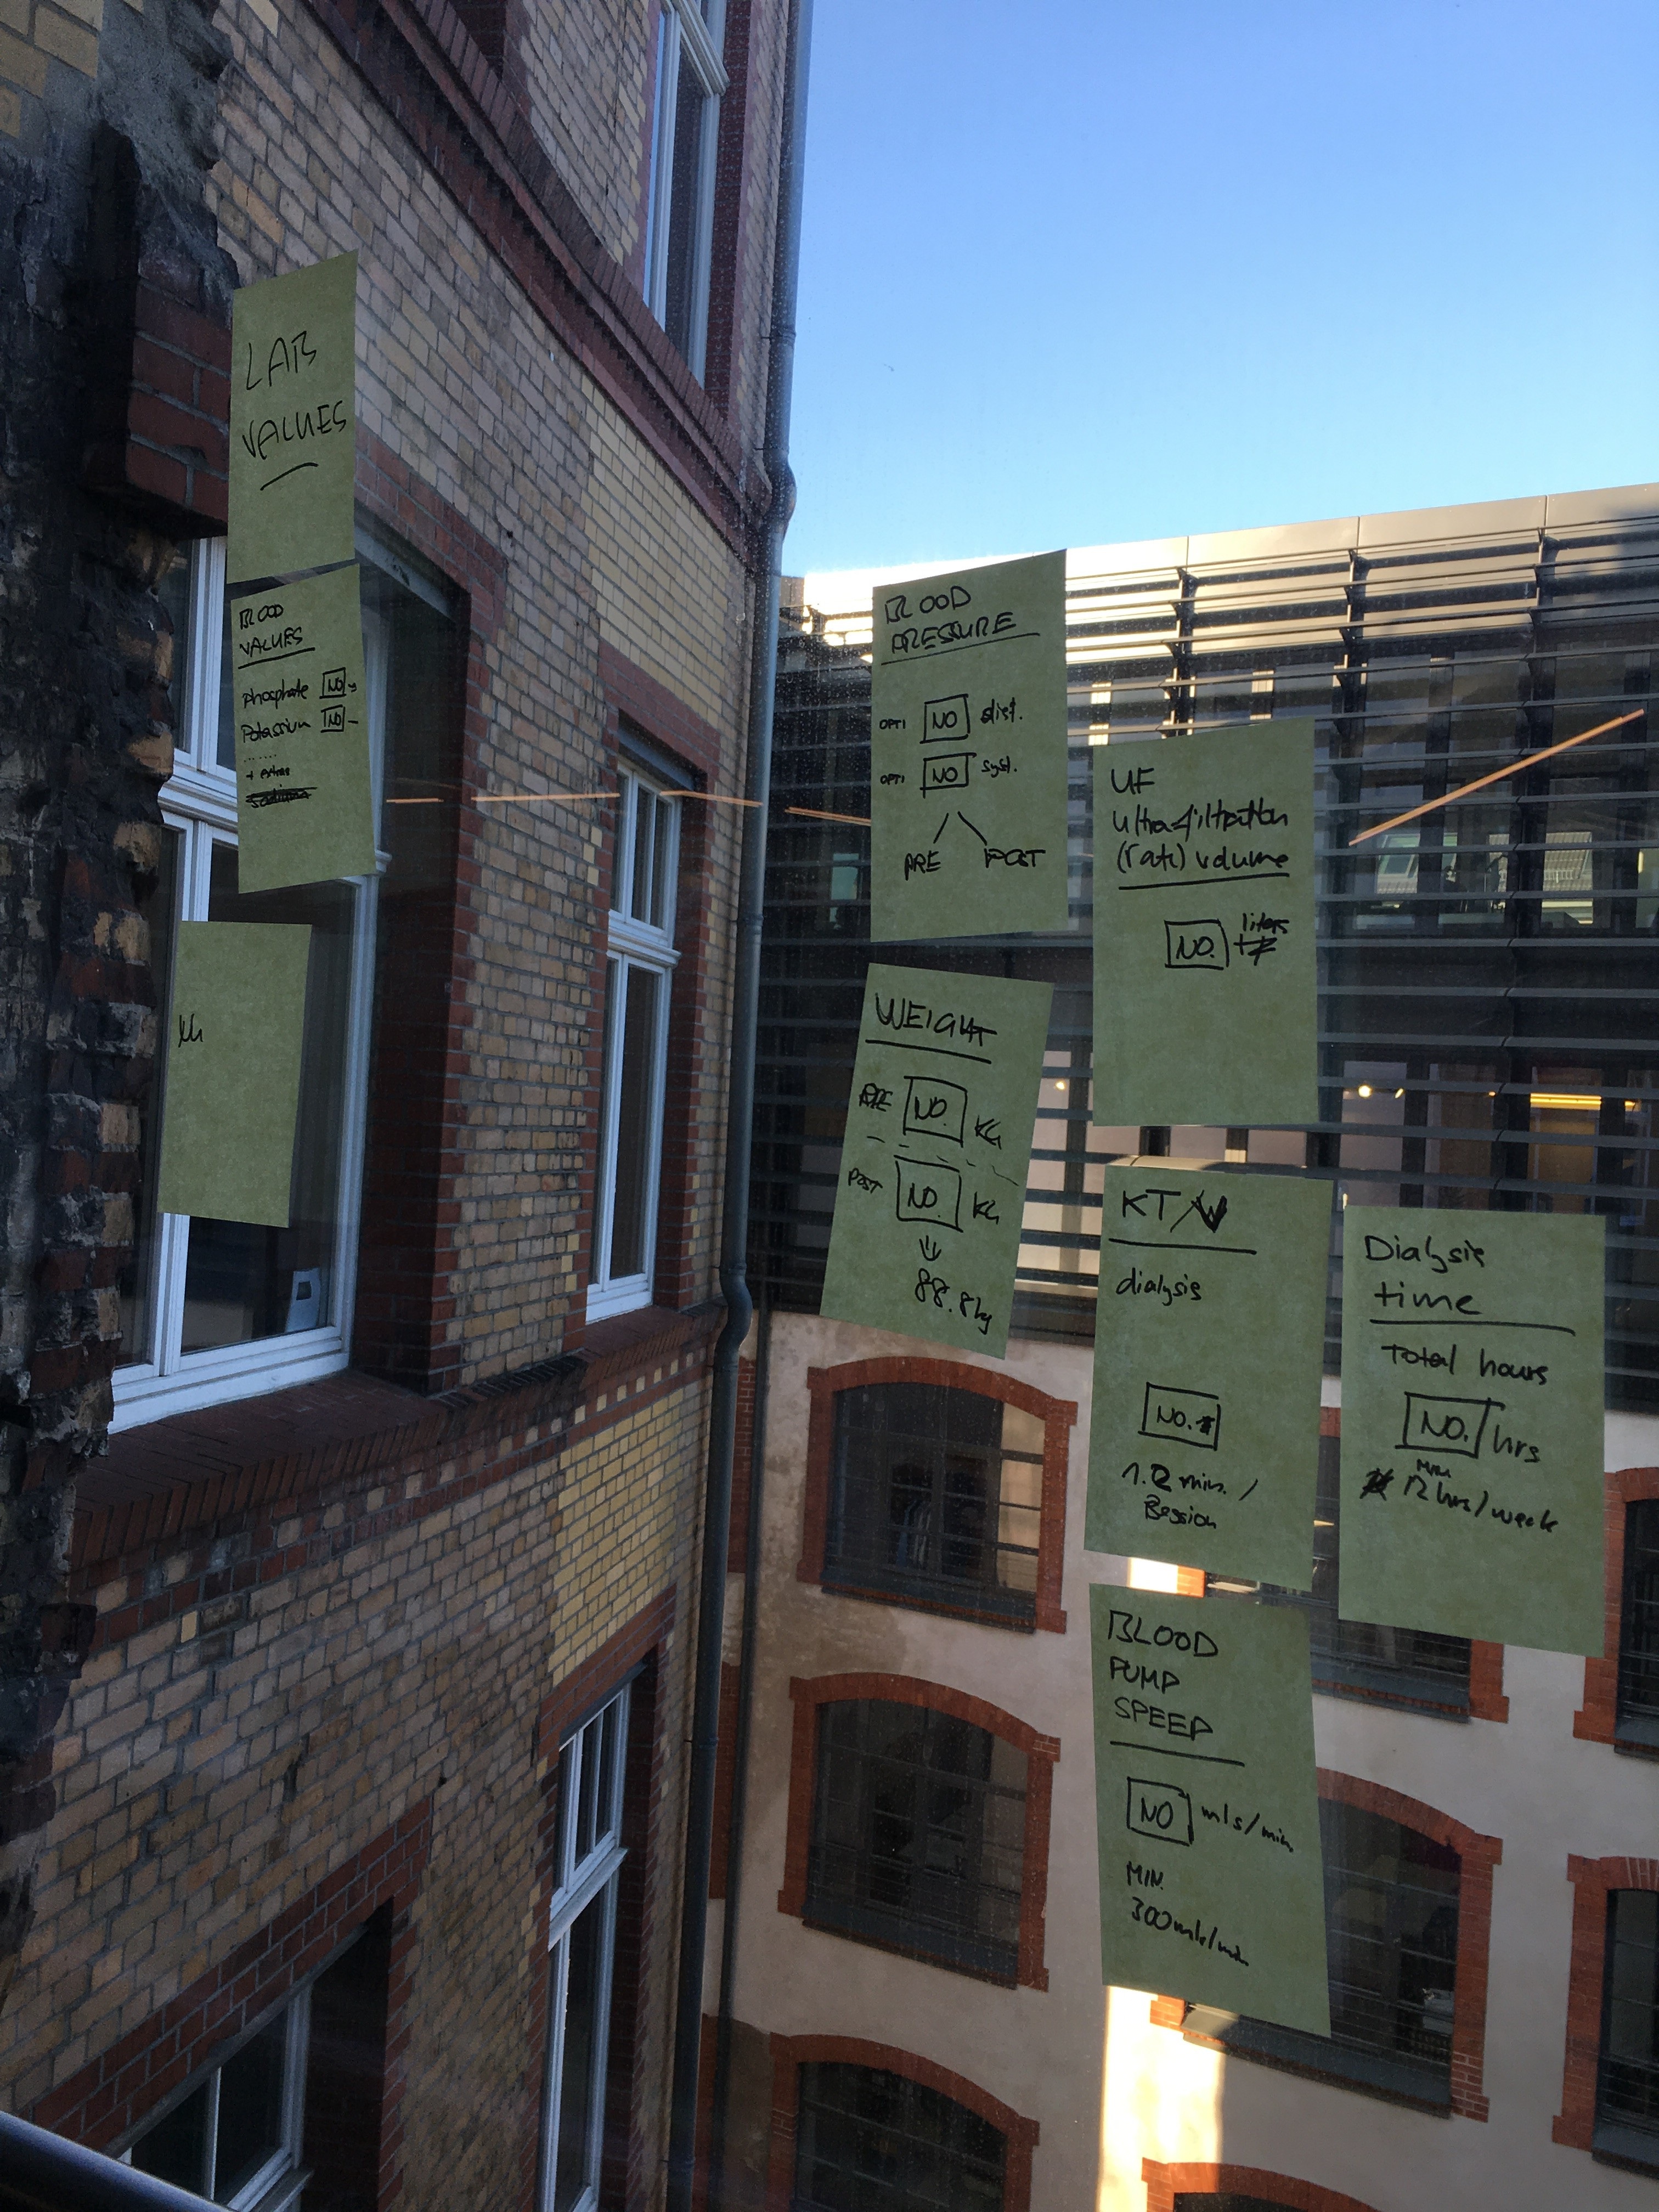 LAB
VALUES
BLOOD
VALUES
Phosphate NO
Potassium NO -
......
+ extras
BLOOD
PRESSURE
OPTI NO diast.
OPTI NO syst.
PRE POST
UF
Ultrafiltration
(rate) volume
NO. liters
WEIGHT
PRE NO. KG
POST NO. KG
88.8kg
KT/V
dialysis
NO.
1.2 min. /
Session
Dialysis
time
Total hours
NO. hrs
MIN
12 hrs/week
BLOOD
PUMP
SPEED
NO mls/min.
MIN.
300mls/min